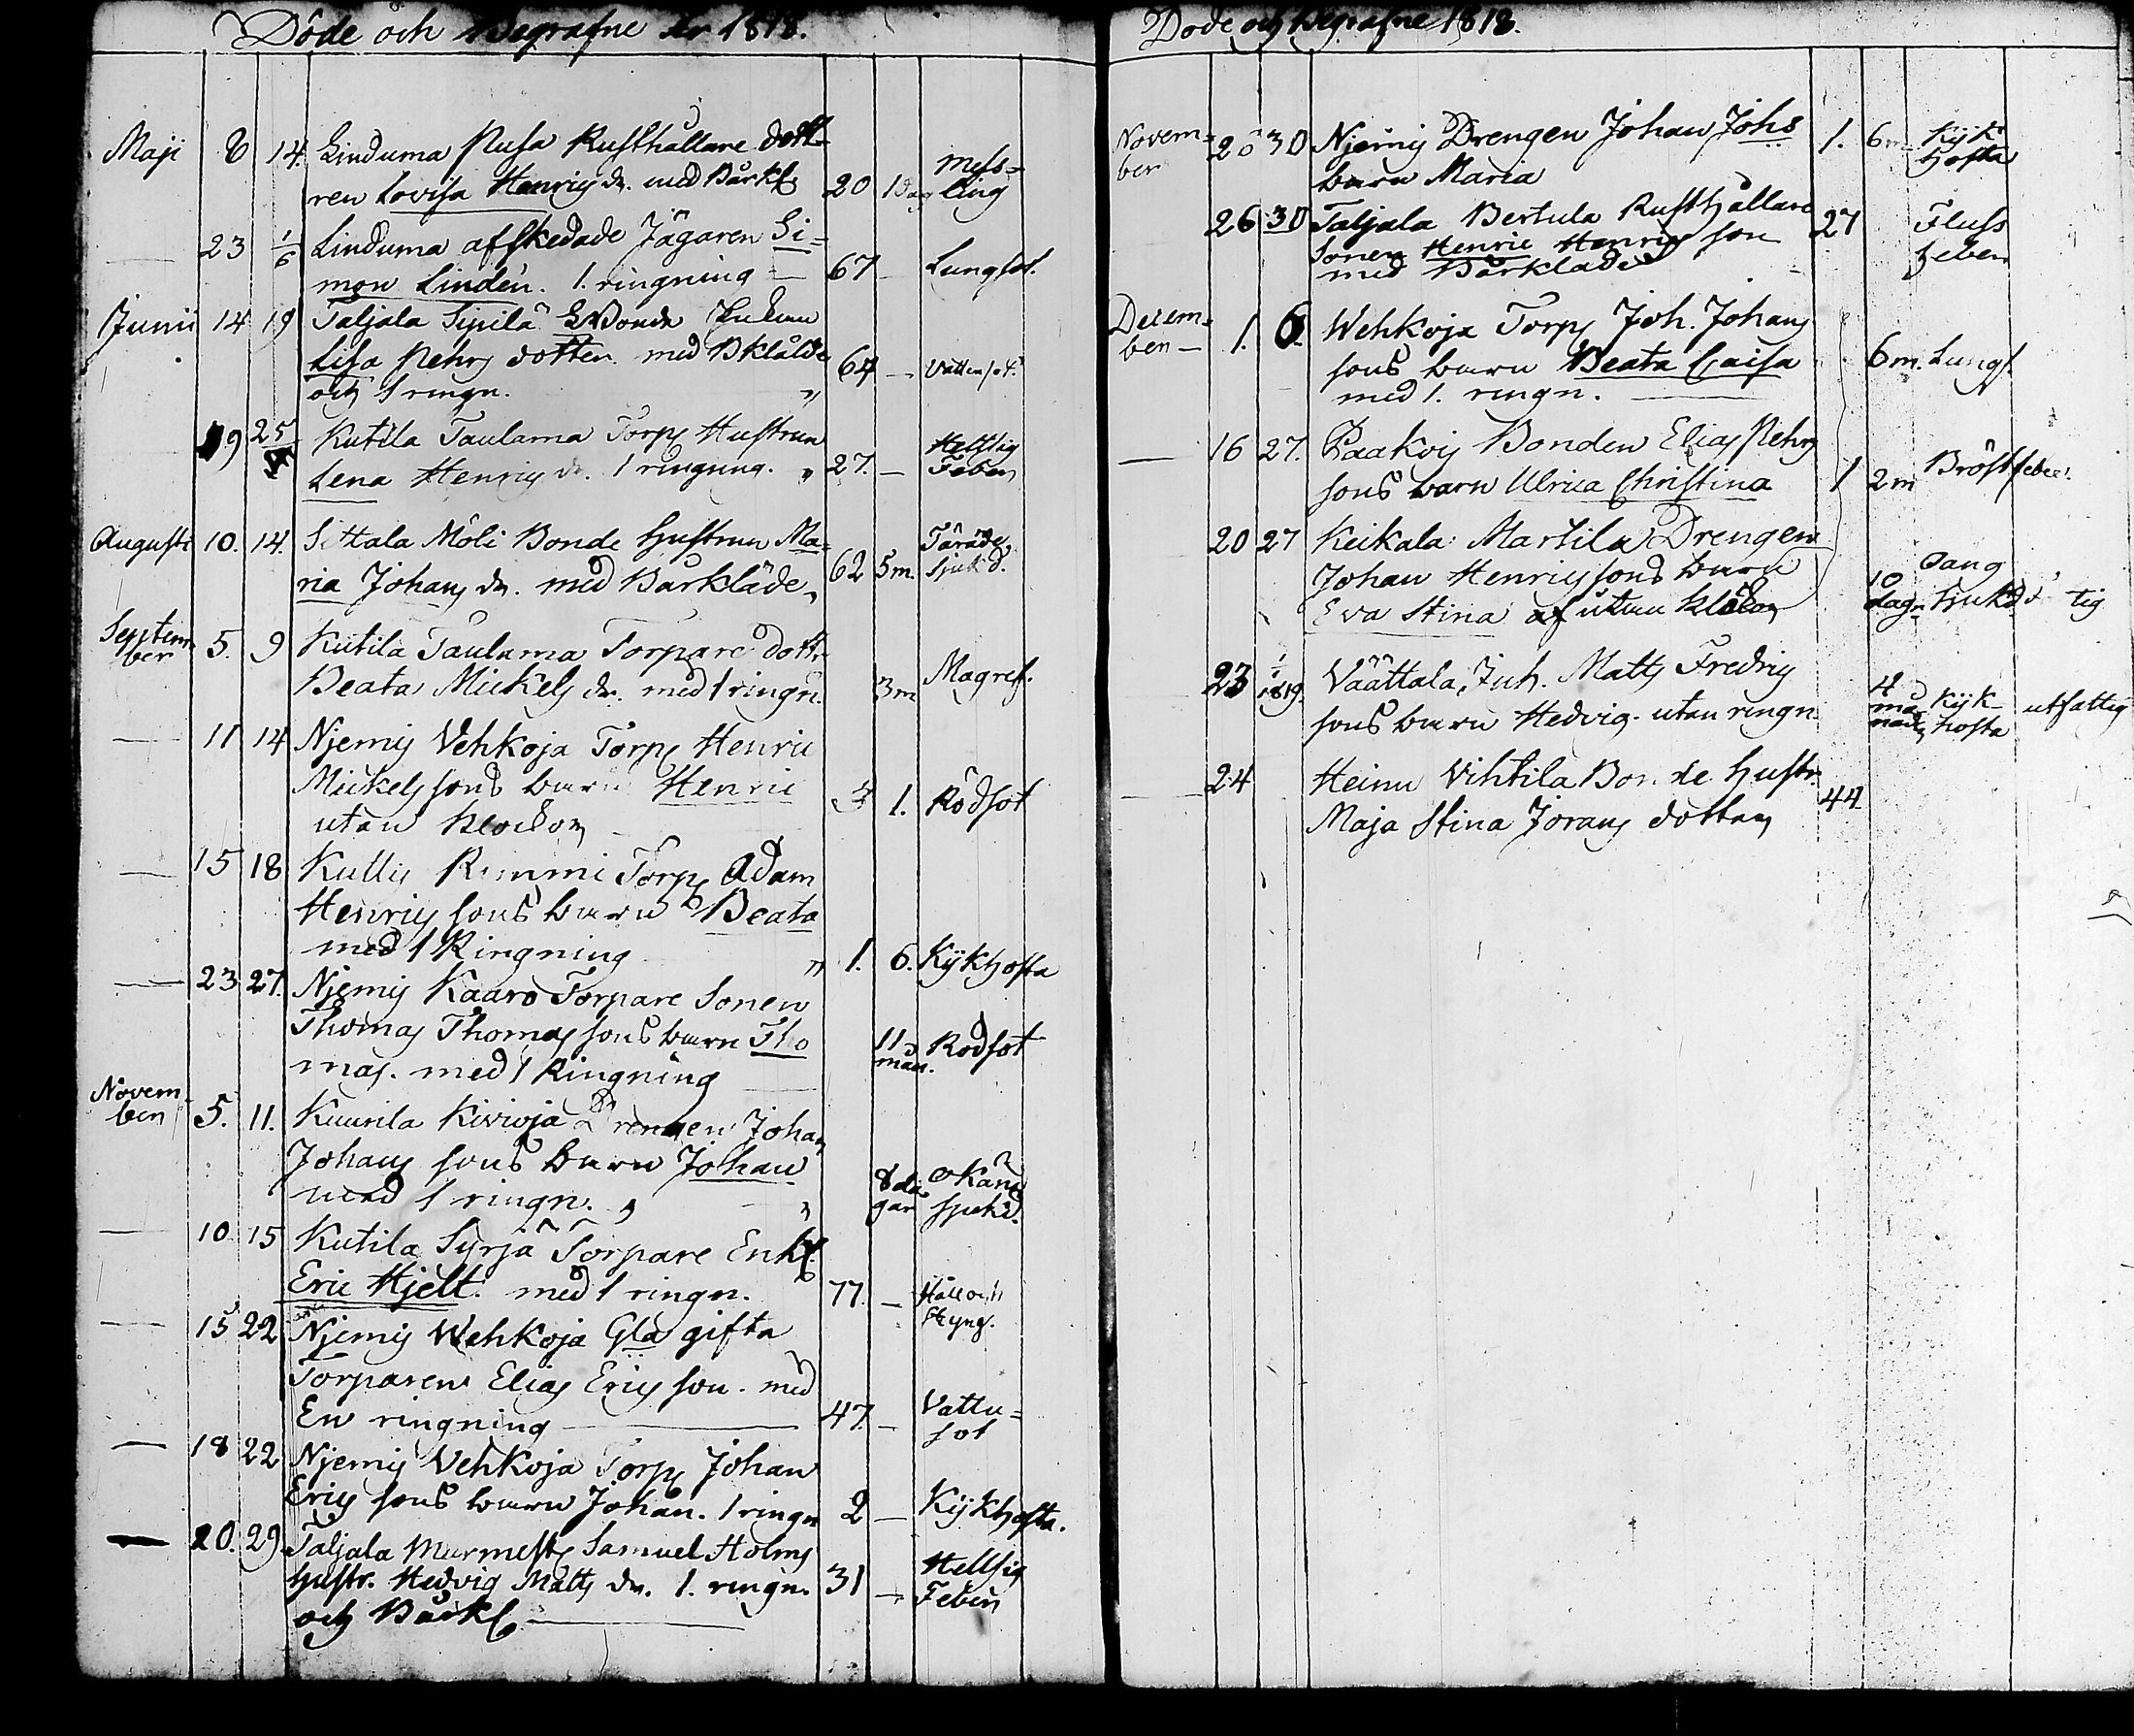 Döde och Begrafne år 1818.
Maji 8 14. Linduma Pusa Rusthållare dott-
ren Lovisa Henrics dr. med Bårkl. 20 1 dag Mess=ling
— 23 1/6 Linduma afskedade Jägaren Si=
mon Lindén. 1. ringning — 67 — Lungsot.
Junii 14 19 Taljala Sipilä Bonde
Lisa Pehrs dotter med Bkläde 64 — Vattusot.
och 1 ringn. "
19 25 Kutila Taulama Torp. Hustrun
Lena Henrics dr. 1 ringning. " 27. — Hettsig Feber
Augusti 10. 14. Sittala Möli Bonde hustrun Ma=
ria Johans dr. med Bårkläde 62 5 m. Tärande Sjukd.
Septem-
ber 5. 9 Kutila Taulama Torpare dottr.
Beata Mickels dr. med 1 ringn. 3 m Magref.
— 11 14 Njemis Vehkoja Torp. Henric
Mickels sons barn Henric
utan klockor 3 1. Rödsot
— 15 18 Kullis Rimmi Torp. Adam
Henrics sons barn Beata
med 1 Ringning " 1. 6. Kykhosta
— 23 27. Njemis Kaaro Torpare Sonen
Thomas Thomas sons barn Tho
mas. med 1 Ringning 11 mån. Rödsot
Novem-
ber 5. 11. Kuurila Kivioja Drengen Johan
Johans sons barn Johan
med 1 ringn. " 8 da-gar okänd sjukd.
— 10 15 Kutila Syrjä Torpare Enkl.
Eric Hjelt. med 1 ringn. 77. — Håll och Styng.
— 15 22 Njemis Wehkoja Gla gifta
Torparen Elias Erics son. med
En ringning — 47. — Vattu=sot
— 18 22 Njemis Vehkoja Torp. Johan
Erics sons barn Johan. 1 ringn 2 — Kykhosta.
— 20. 29. Taljala Murmest. Samuel Holms
hustr. Hedvig Matts dr. 1. ringn. 31 — Hettsig Feber
och Bårkl. —
Döde och Begrafne 1818.
Novem=
ber 20 30 Njemis Drengen Johan Johs
barn Maria 1. 6 m Kyk hosta
26 30 Taljala Bertula Rusthållare
Sonen Henric Henrics son 27 Fluss feber
med Bårkläde
Decem=
ber — 1. 6. Wehkoja Torp. Joh. Johans
sons barn Beata Caisa 6 m. Lungs.
med 1. ringn. —
— 16 27. Paakois Bonden Elias Pehrs
sons barn Ulrica Christina 1 2 m Bröstfeber.
20 27 Keikala Martila Drengen
Johan Henrics sons barn
Eva Stina af utan klockor 10 dagr sjukd. tig
23 1/1 1819. Väättala, Inh. Matts Fredrics
sons barn Hedvig. utan ringn. 4 må-nader Kyk-hosta utfattig
— 24 Heinu Vihtila Bonde hustr.
Maja Stina Jörans dotter 44